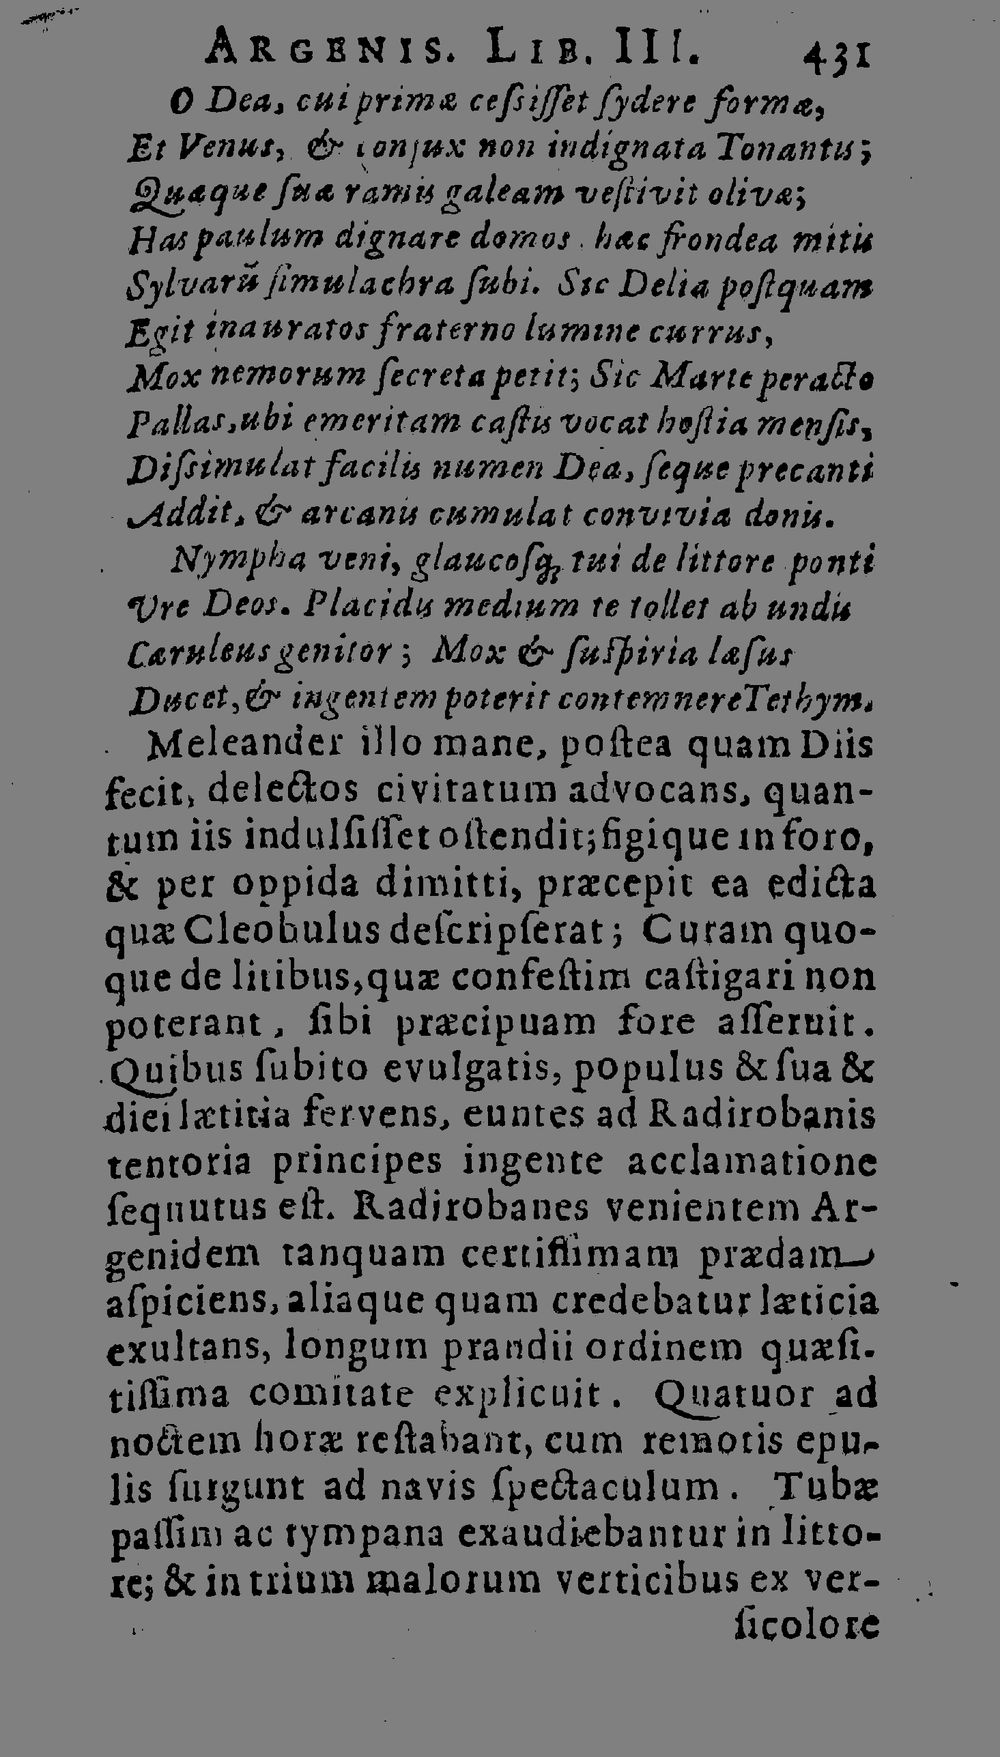 ARGENIS. LIB. III. 431
O Dea, cui primæ ceſsiſſet ſydere formæ,
Et Venus, & conjux non indignata Tonantis;
Quæque ſuæ ramis galeam veſtivit olivæ;
Has paulum dignare domos. hæc frondea mitis
Sylvarũ ſimulachra ſubi. Sic Delia poſtquam
Egit inauratos fraterno lumine currus,
Mox nemorum ſecreta petit; Sic Marte peracto
Pallas, ubi emeritam caſtis vocat hoſtia menſis,
Diſsimulat facilis numen Dea, ſeque precanti
Addit, & arcanis cumulat convivia donis.
Nympha veni, glaucoſq; tui de littore ponti
Vre Deos. Placidis medium te tollet ab undis
Cæruleus genitor; Mox & ſuſpiria læſus
Ducet, & ingentem poterit contemnere Tethym.
Meleander illo mane, poſtea quam Diis
fecit, delectos civitatum advocans, quan-
tum iis indulſiſſet oſtendit; figique in foro,
& per oppida dimitti, præcepit ea edicta
quæ Cleobulus deſcripſerat; Curam quo-
que de litibus, quæ confeſtim caſtigari non
poterant, ſibi præcipuam fore aſſeruit.
Quibus ſubito evulgatis, populus & ſua &
diei lætitia fervens, euntes ad Radirobanis
tentoria principes ingente acclamatione
ſequutus eſt. Radirobanes venientem Ar-
genidem tanquam certiſſimam prædam
aſpiciens, aliaque quam credebatur læticia
exultans, longum prandii ordinem quæſi-
tiſſima comitate explicuit. Quatuor ad
noctem horæ reſtabant, cum remotis epu-
lis ſurgunt ad navis ſpectaculum. Tubæ
paſſim ac tympana exaudiebantur in litto-
re; & in trium malorum verticibus ex ver-
ſicolore